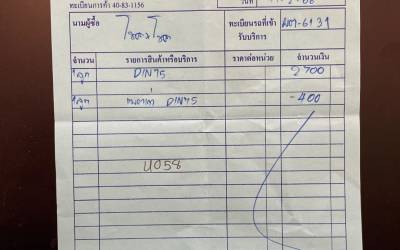 ทะเบียนการค้า 40-83-1156
วันที่
นามผู้ซื้อ ทะเบียนรถที่เข้ารับบริการ -6131
จำนวน รายการสินค้าหรือบริการ ราคาต่อหน่วย จำนวนเงิน
1ลูก DIN75 2700
1ลูก DIN75 -400
U058